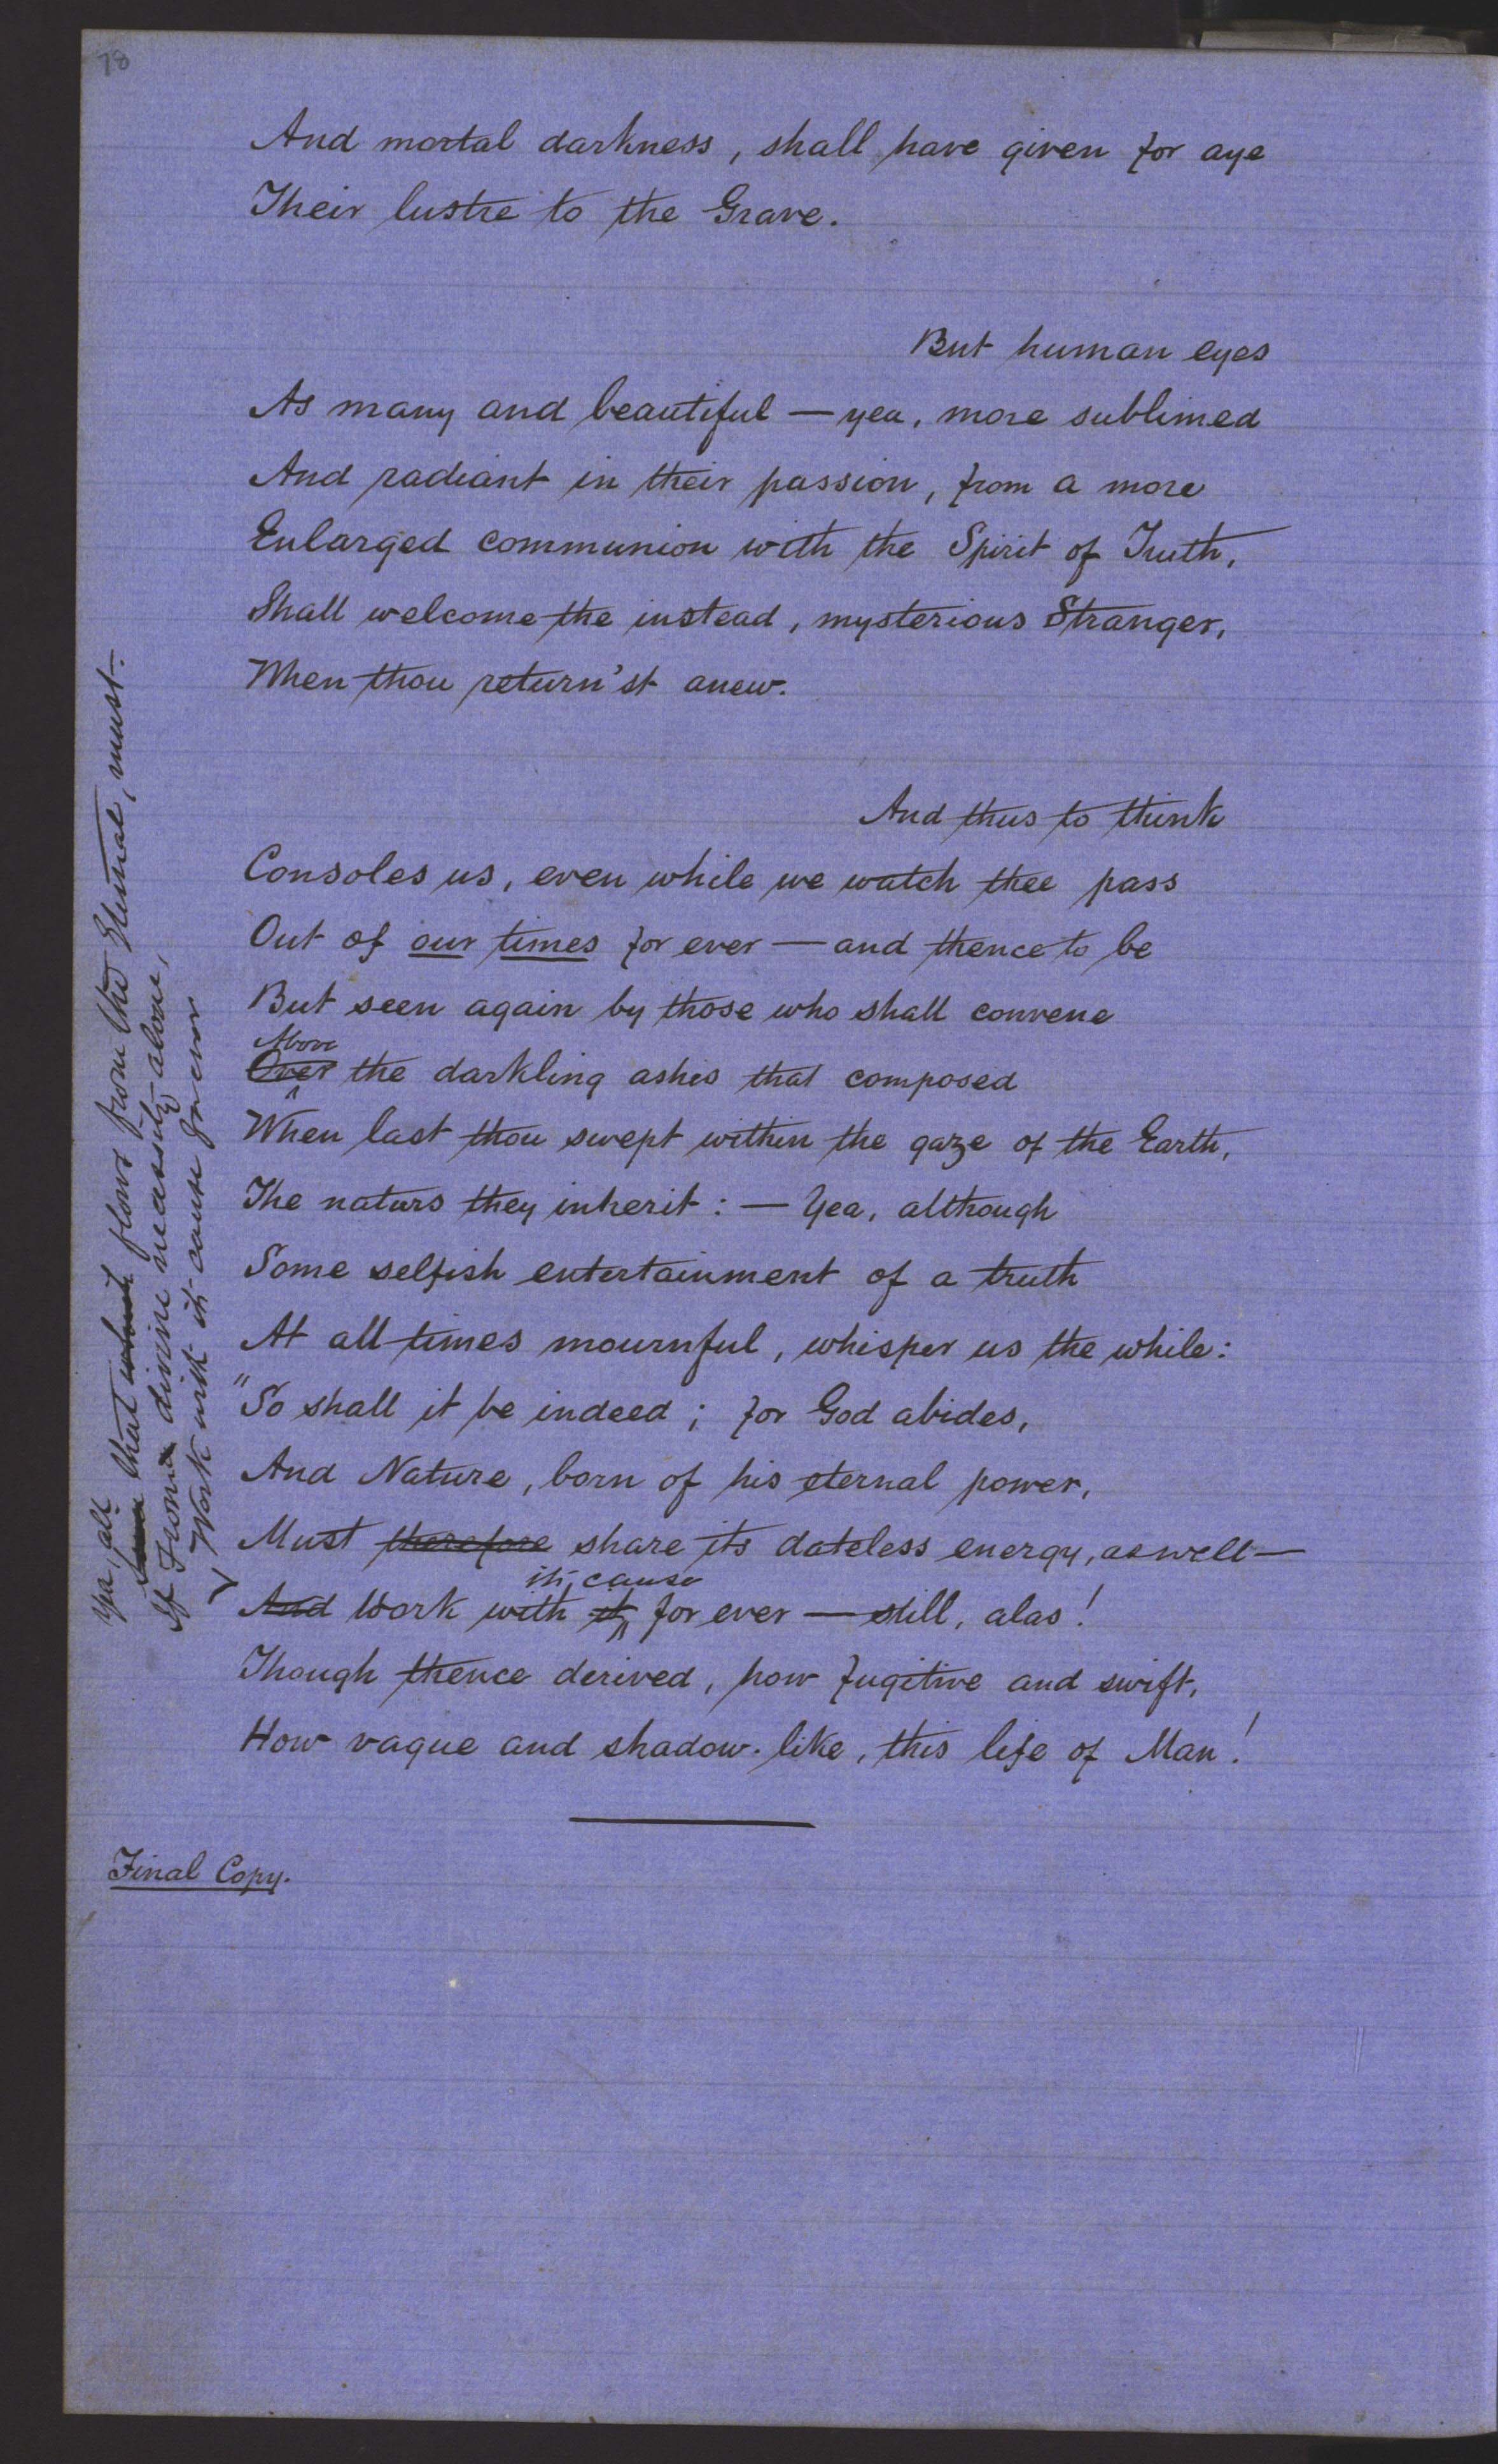 78
And mortal darkness, shall have given for aye
Their lustre to the Grave.
But human eyes
As many and beautiful — yea, more sublimed
And radiant in their passion, from a more
Enlarged communion with the Spirit of Truth,
Shall welcome the instead, mysterious Stranger,
When thou return'st anew.
And thus to think
Consoles us, even while we watch thee pass
Out of our times for ever — and thence to be
But seen again by those who shall convene
Above
Over the darkling ashes that composed
When last thou swept within the gaze of the Earth,
The naturs they inherit: — Yea, although
Some selfish entertainment of a truth
At all times mournful, whisper us the while:
"So shall it be indeed; for God abides,
And Nature, born of his eternal power,
Must therefore share its dateless energy, as well —
its cause
And Work with it for ever — still, alas!
Though thence derived, how fugitive and swift,
How vague and shadow-like, this life of Man!
Final Copy.
Yea, all
that which flows from the Eternal, must
If From divine necessity alone,
Work with its cause forever